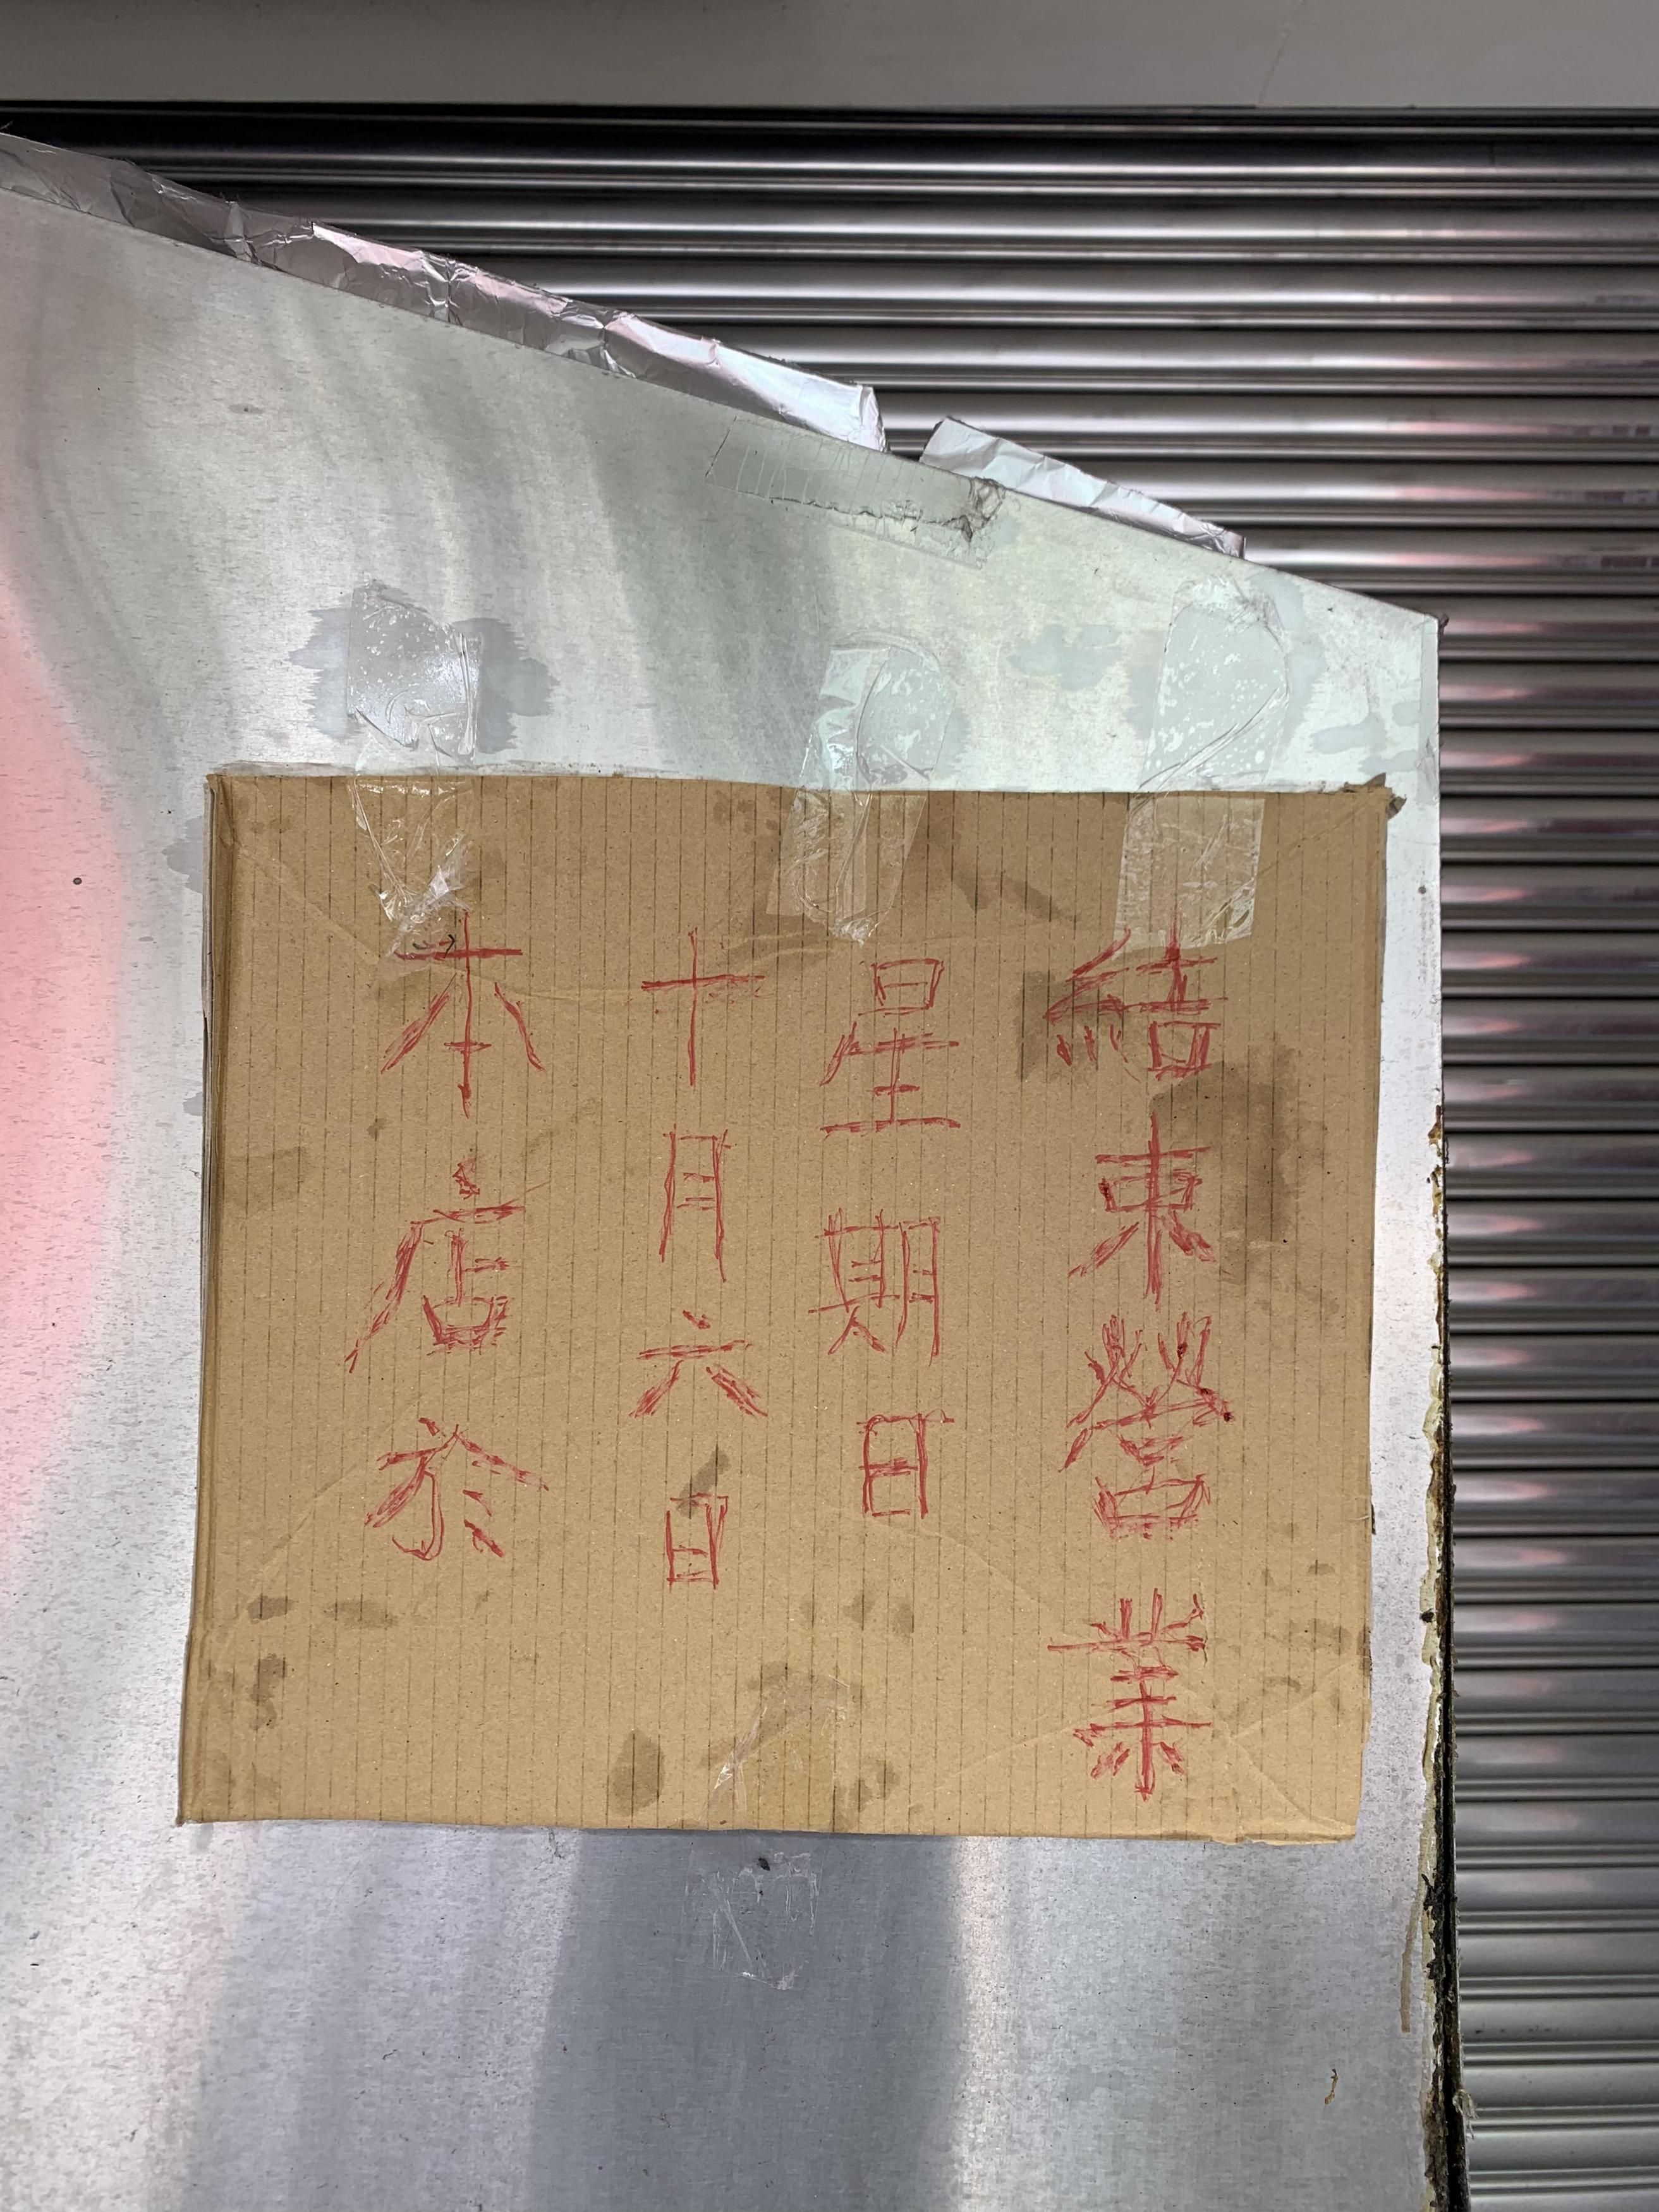 本店於
十月六日
星期日
結束營業